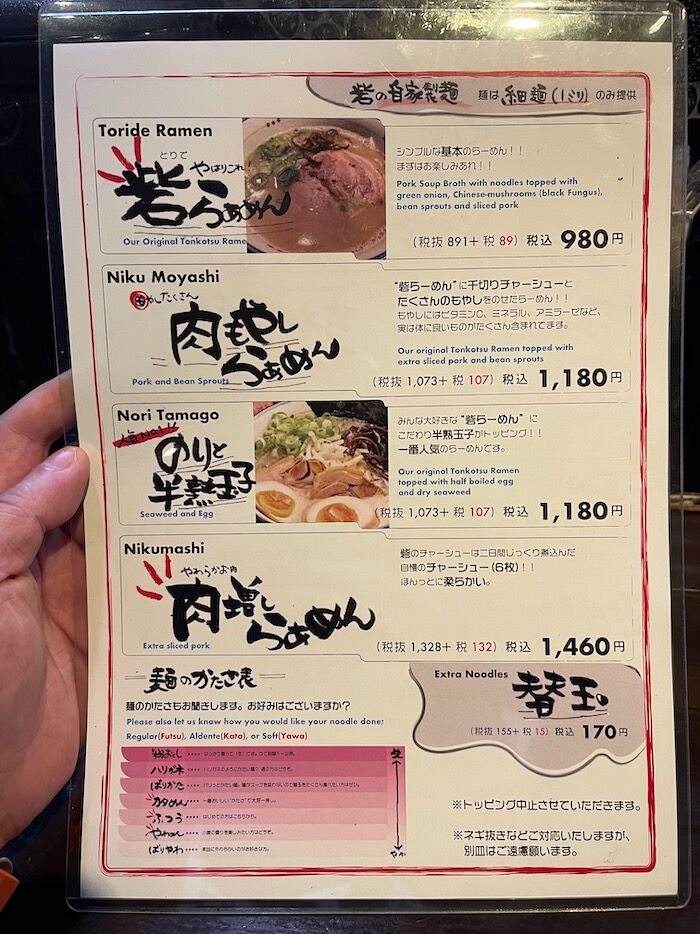 砦の自家製麺 麺は 細麺(1ミリ) のみ提供
Toride Ramen
とりで
やはりこれ!
砦らぁめん
Our Original Tonkotsu Rame
シンプルな基本のらーめん!!
まずはお楽しみあれ!!
Pork Soup Broth with noodles topped with
green onion, Chinese-mushrooms (black Fungus),
bean sprouts and sliced pork
(税抜 891+ 税 89) 税込 980円
Niku Moyashi
もやしたくさん
肉もやし
らぁめん
Pork and Bean Sprouts
"砦らーめん"に千切りチャーシューと
たくさんのもやしをのせたらーめん!!
もやしにはビタミンC、ミネラル、アミラーゼなど、
実は体に良いものがたくさん含まれてます。
Our original Tonkotsu Ramen topped with
extra sliced pork and bean sprouts
(税抜 1,073+ 税 107) 税込 1,180円
Nori Tamago
人気No.1!!
のりと
半熟玉子
Seaweed and Egg
みんな大好きな "砦らーめん" に
こだわり半熟玉子がトッピング!!
一番人気のらーめんです。
Our original Tonkotsu Ramen
topped with half boiled egg
and dry seaweed
(税抜 1,073+ 税 107) 税込 1,180円
Nikumashi
やわらかお肉
肉増し
らぁめん
Extra sliced pork
砦のチャーシューは二日間じっくり煮込んだ
自慢のチャーシュー(6枚)!!
ほんっとに柔らかい。
(税抜 1,328+ 税 132) 税込 1,460円
麺のかたさ表
麺のかたさもお聞きします。お好みはございますか?
Please also let us know how you would like your noodle done;
Regular(Futsu), Aldente(Kata), or Soft(Yawa)
粉おとし
ハリガネ
ばりかた
カタめん
ふつう
やわめん
ばりやわ
生
やわ
Extra Noodles
替玉
(税抜 155+ 税 15) 税込 170円
※トッピング中止させていただきます。
※ネギ抜きなどご対応いたしますが、
別皿はご遠慮願います。